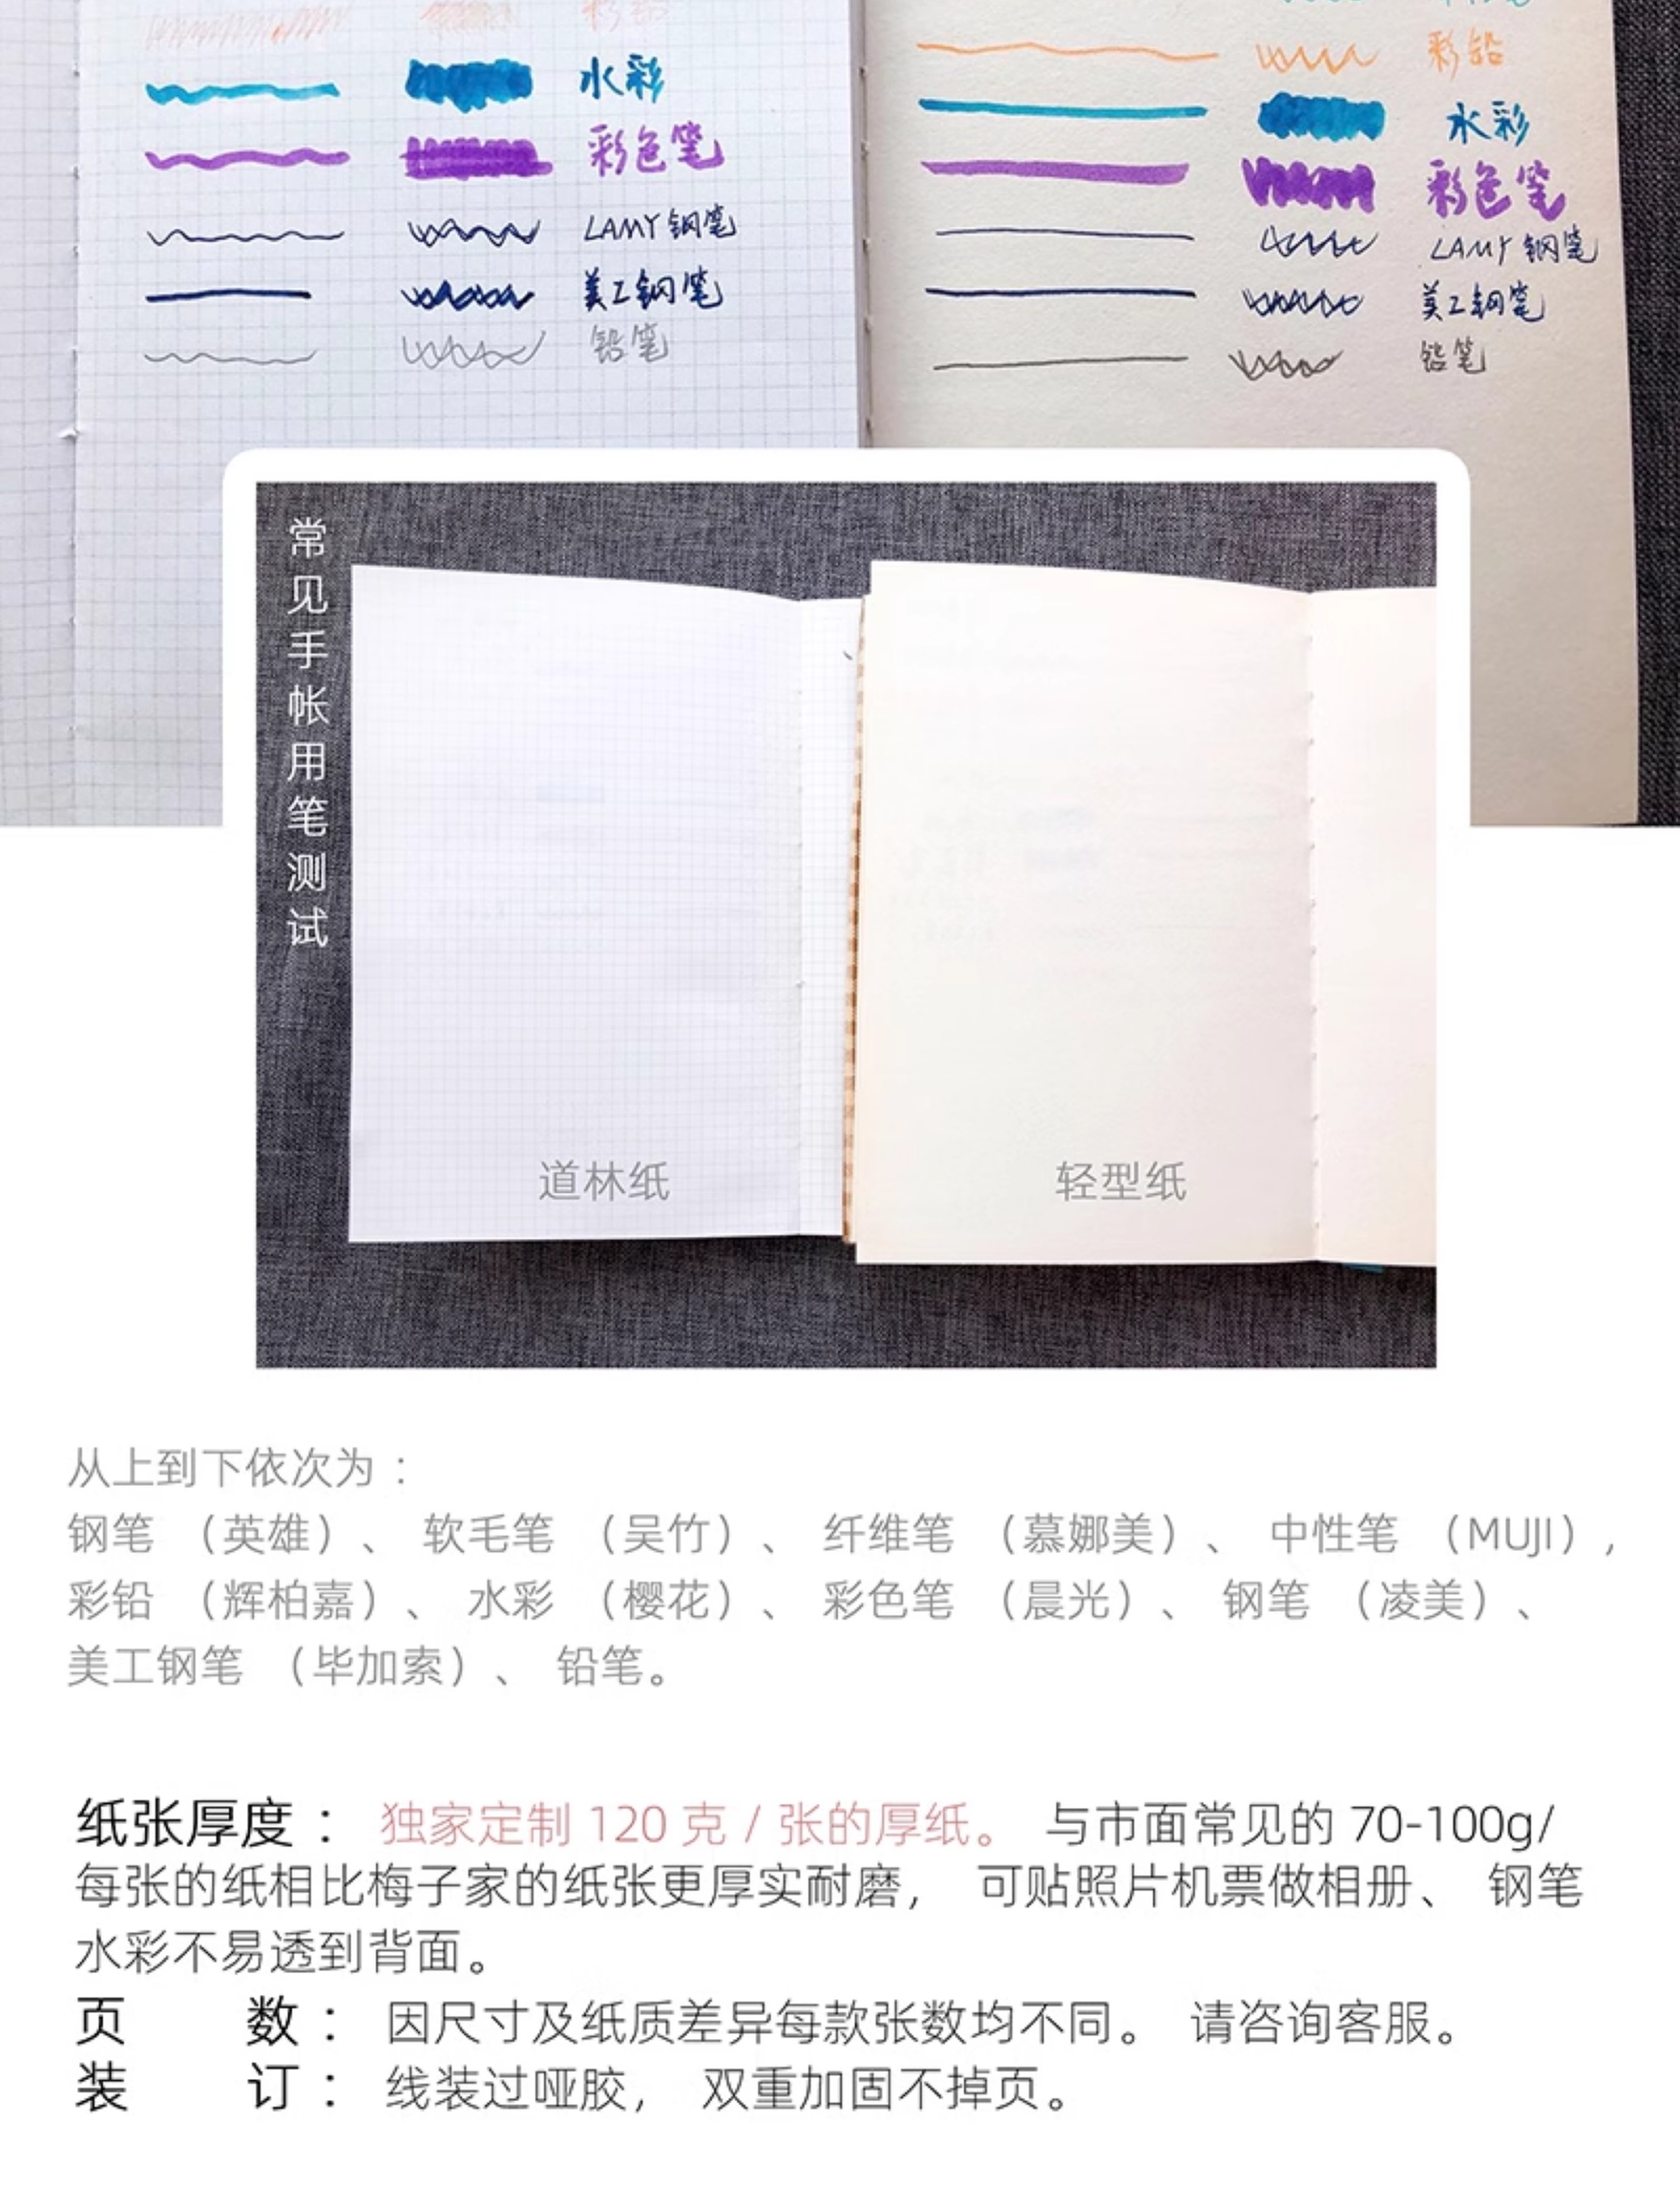 彩铅
水彩
彩色笔
LAMY 钢笔
美工钢笔
铅笔
彩铅
水彩
彩色笔
LAMY 钢笔
美工钢笔
铅笔
常见手帐用笔测试
道林纸
轻型纸
从上到下依次为：
钢笔 （英雄）、 软毛笔 （吴竹）、 纤维笔 （慕娜美）、 中性笔 （MUJI），
彩铅 （辉柏嘉）、 水彩 （樱花）、 彩色笔 （晨光）、 钢笔 （凌美）、
美工钢笔 （毕加索）、 铅笔。
纸张厚度： 独家定制 120 克 / 张的厚纸。 与市面常见的 70-100g/
每张的纸相比梅子家的纸张更厚实耐磨， 可贴照片机票做相册、 钢笔
水彩不易透到背面。
页 数： 因尺寸及纸质差异每款张数均不同。 请咨询客服。
装 订： 线装过哑胶， 双重加固不掉页。